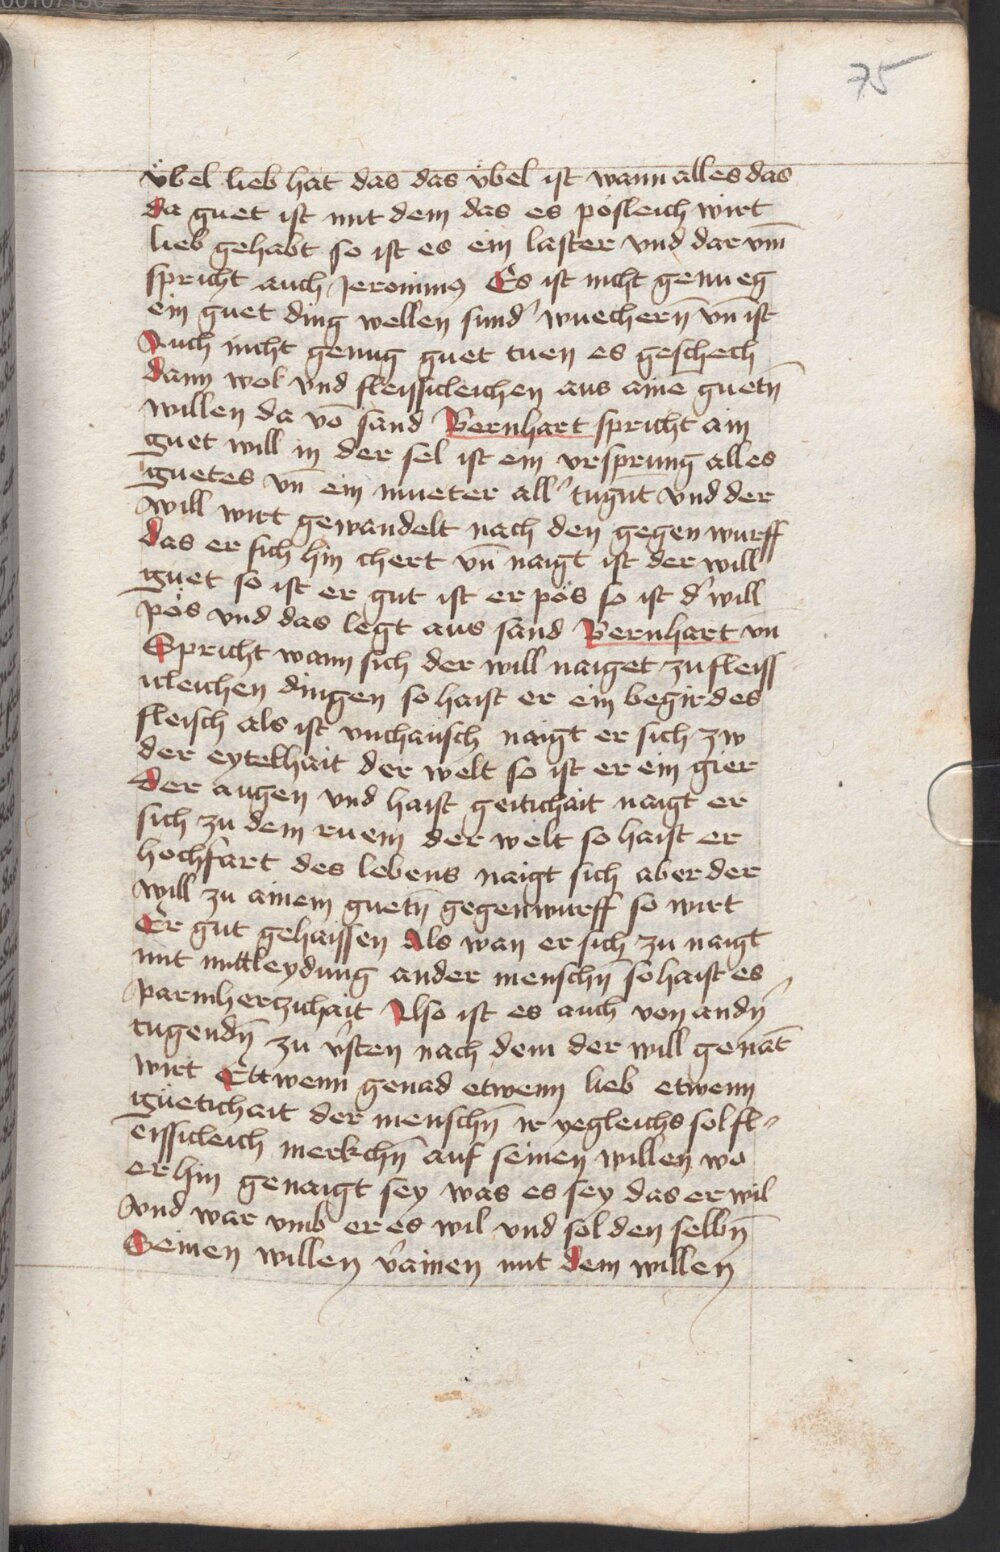 75
übel lieb hat das das übel ist wann alles das
da guet ist mit dem das es posleich wirt
lieb gehabt so ist es ein laster vnd dar vm̄
spricht auch Jeronimꝰ Es ist nicht genueg
ein guet ding wellen sund' wuechern̄ vn̄ ist
Auch nicht genug guet tuen es geschech
dann wol vnd fleissicleichen aus aine guetn̄
willen da vō sand Bernhart spricht ain
guet will in der sel ist ein vrsprung alles
guetes vn̄ ein mueter all' tugnt vnd der
will wirt gewandelt nach den gegen wurff
das er sich hin chert vn̄ naigt ist der will
guet so ist er gut ist er pös so ist d' will
pös vnd das legt aus sand Bernhart vn
Spricht wann sich der will naiget zu fleiss
icleichen dingen so haist er ein begirdes
fleisch als ist vnchausch naigt er sich zw
der eytelhait der welt so ist er ein gier
Der augen vnd haist geitichait naigt er
sich zu dem ruem der welt so haist er
hochfart des lebens naigt sich aber der
will zu ainem guetn̄ gegenwurff so wirt
Er gut gehaissen Als wan er sich zu naigt
mit mitleydung ander menschn̄ so haist es
parmhertzichait Also ist es auch von andn̄
tugendn̄ zu v'sten nach dem der will genāt
wirt Ettwenn genad etwenn lieb etwenn
güetichait der menschn̄ ir yegleichs sol fl-
eissicleich merkchn̄ auf seinen willen wo
er hin genaigt sey was es sey das er wil
vnd war vmb er es wil vnd sol den selbn̄
Seinen willen v'ainen mit dem willen